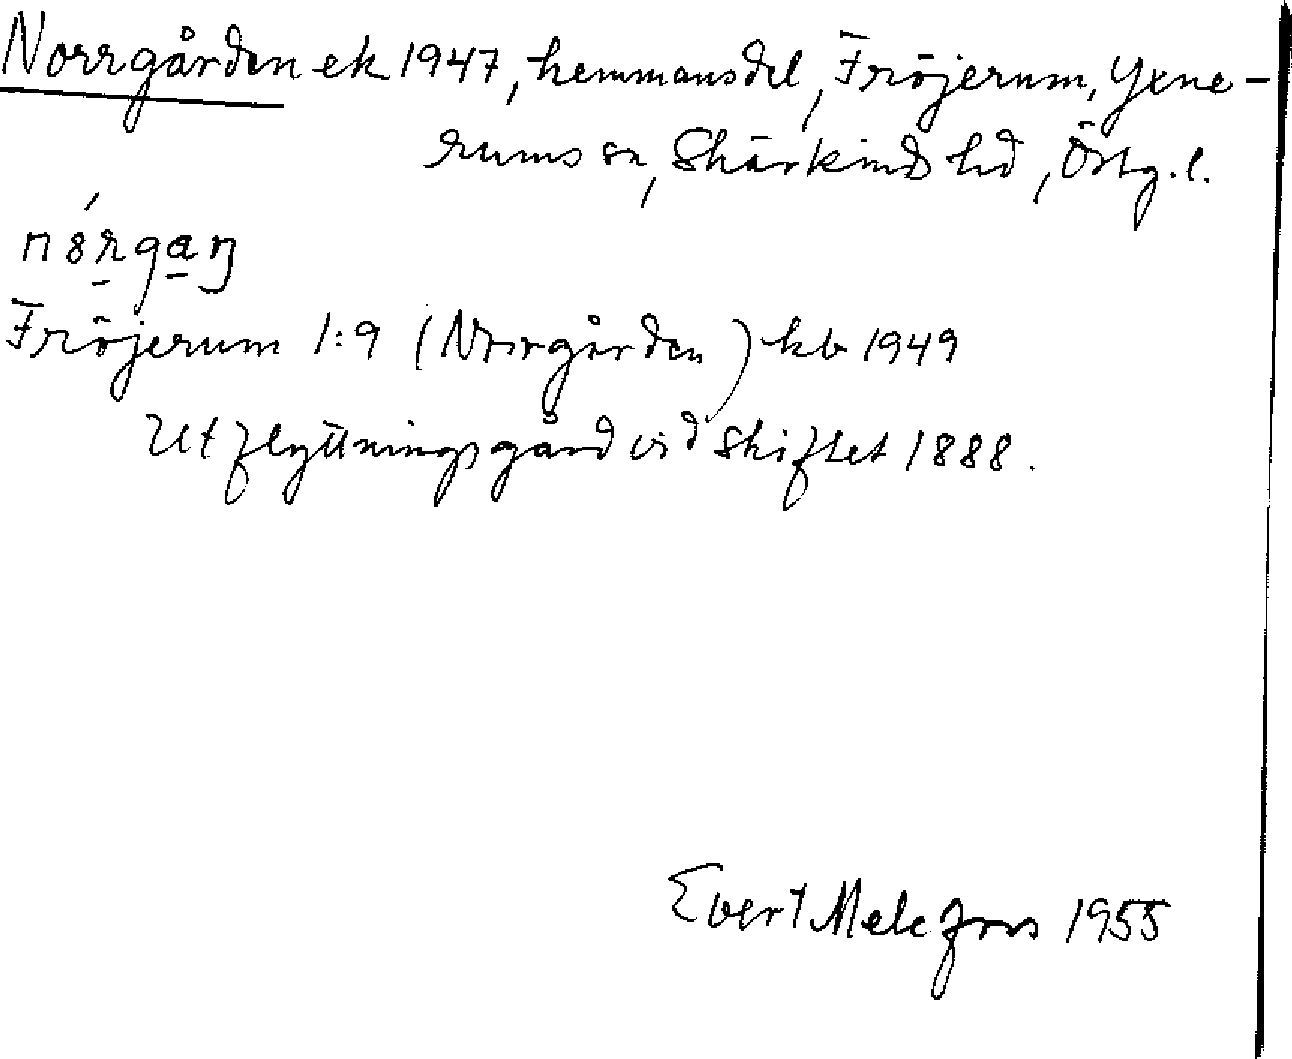 Norrgården ek 1947, hemmansdel, Fröjerum, Yxne-
rums sn, Skärkinds hd, Östg. l.
Fröjerum 1:9 (Norrgården) kb 1949
Utflyttningsgård vid skiftet 1888.
Evert Melefors 1955